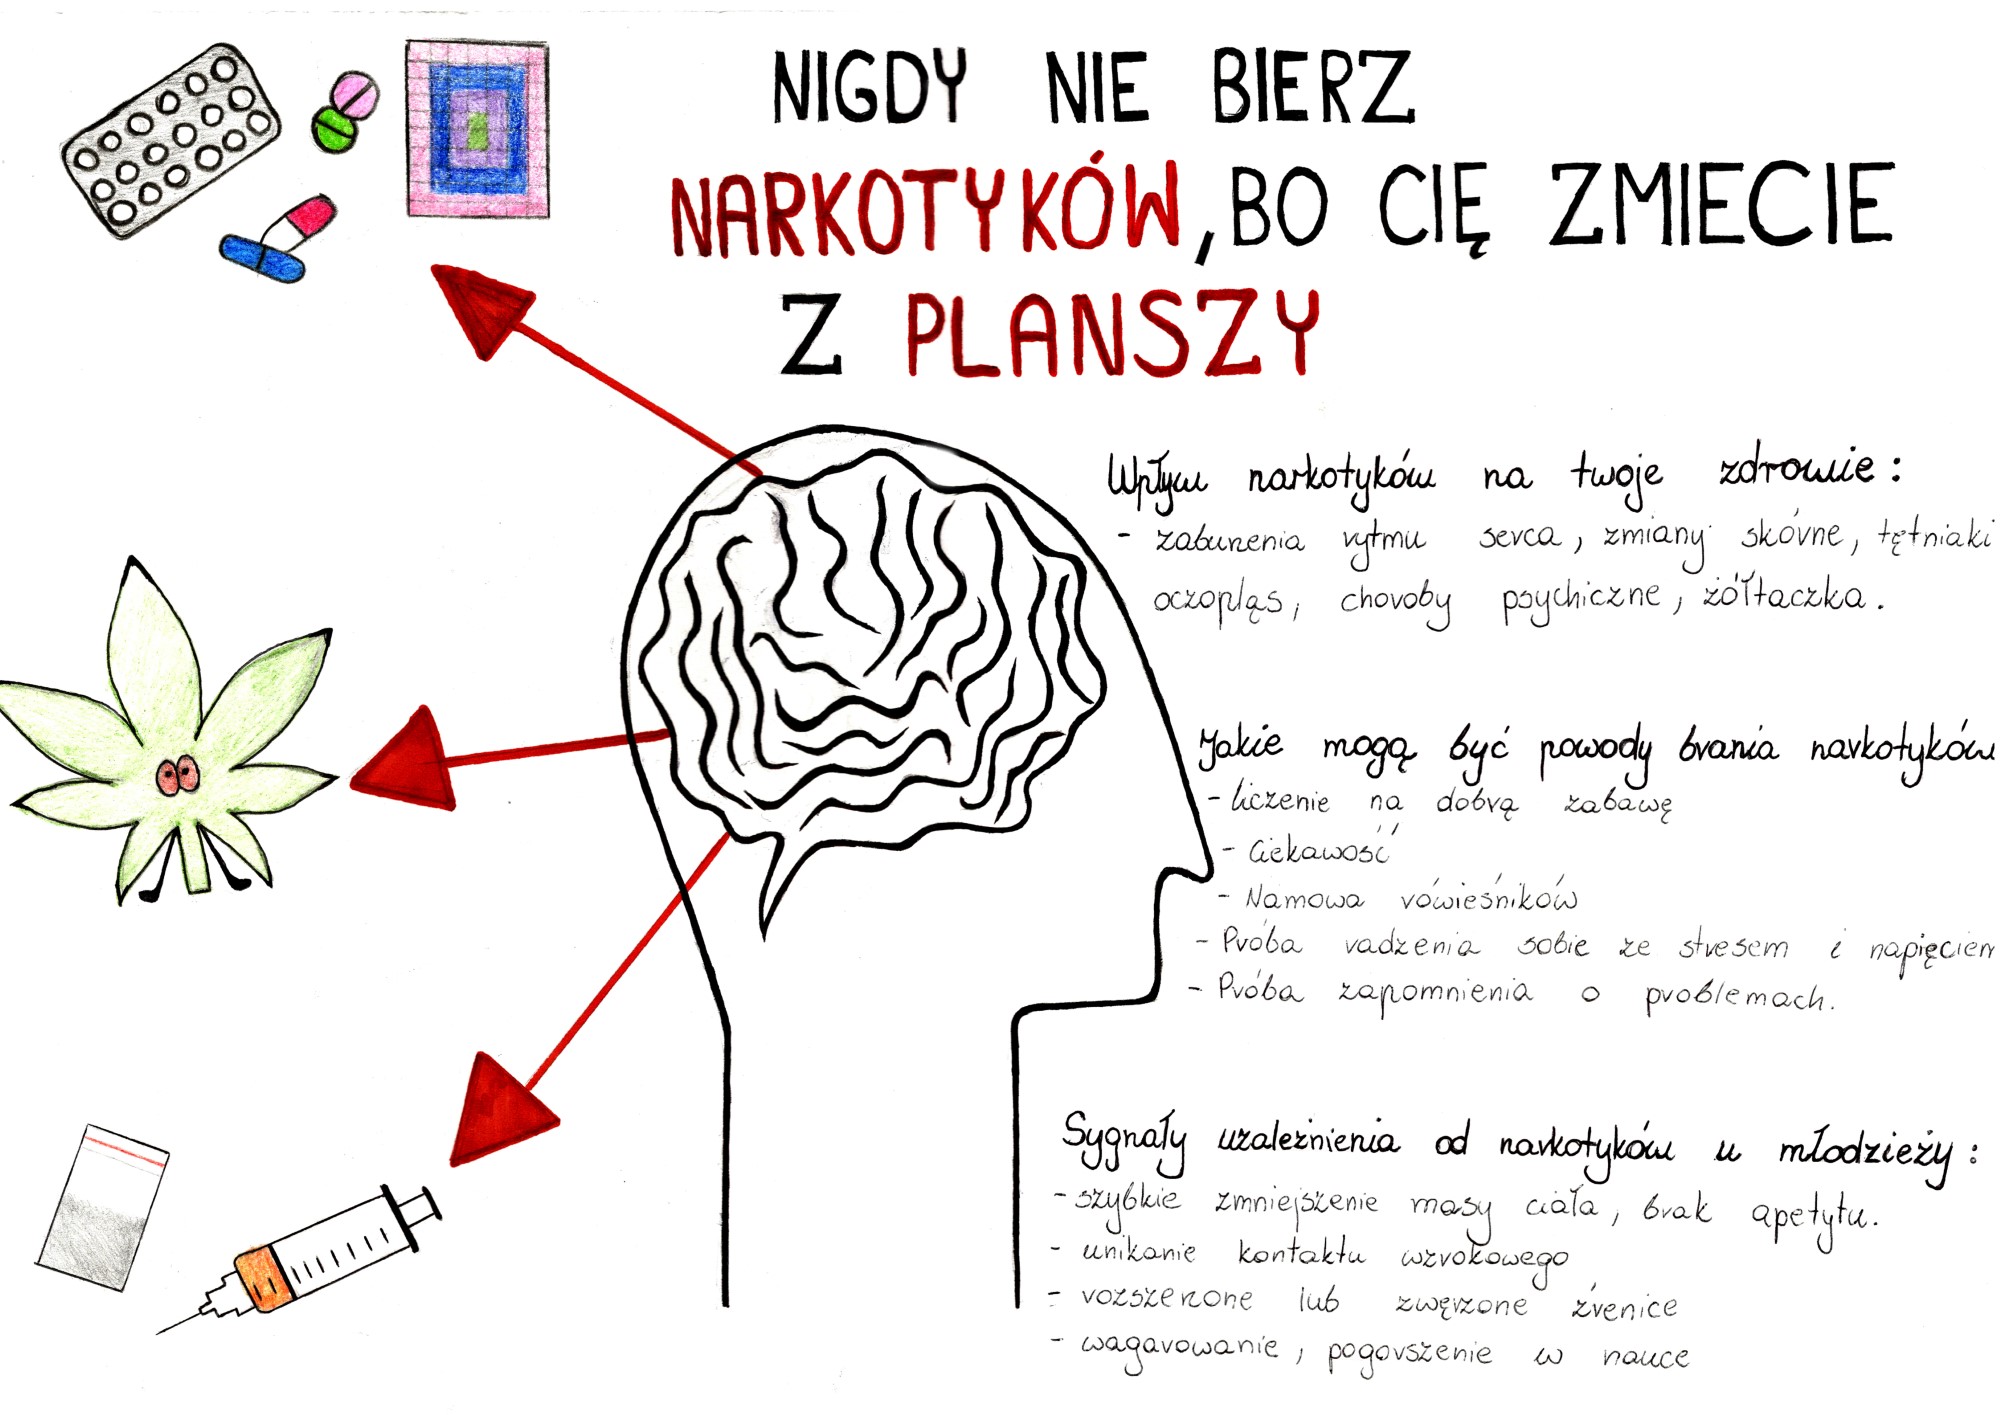 NIGDY NIE BIERZ
NARKOTYKÓW, BO CIĘ ZMIECIE
Z PLANSZY
Wpływ narkotyków na twoje zdrowie:
- zaburzenia rytmu serca, zmiany skórne, tętniaki
oczopląs, choroby psychiczne, żółtaczka.
Jakie mogą być powody brania narkotyków
- liczenie na dobrą zabawę
- Ciekawość
- Namowa rówieśników
- Próba radzenia sobie ze stresem i napięciem
- Próba zapomnienia o problemach.
Sygnały uzależnienia od narkotyków u młodzieży:
- szybkie zmniejszenie masy ciała, brak apetytu.
- unikanie kontaktu wzrokowego
- rozszerzone lub zwężone źrenice
- wagarowanie, pogorszenie w nauce